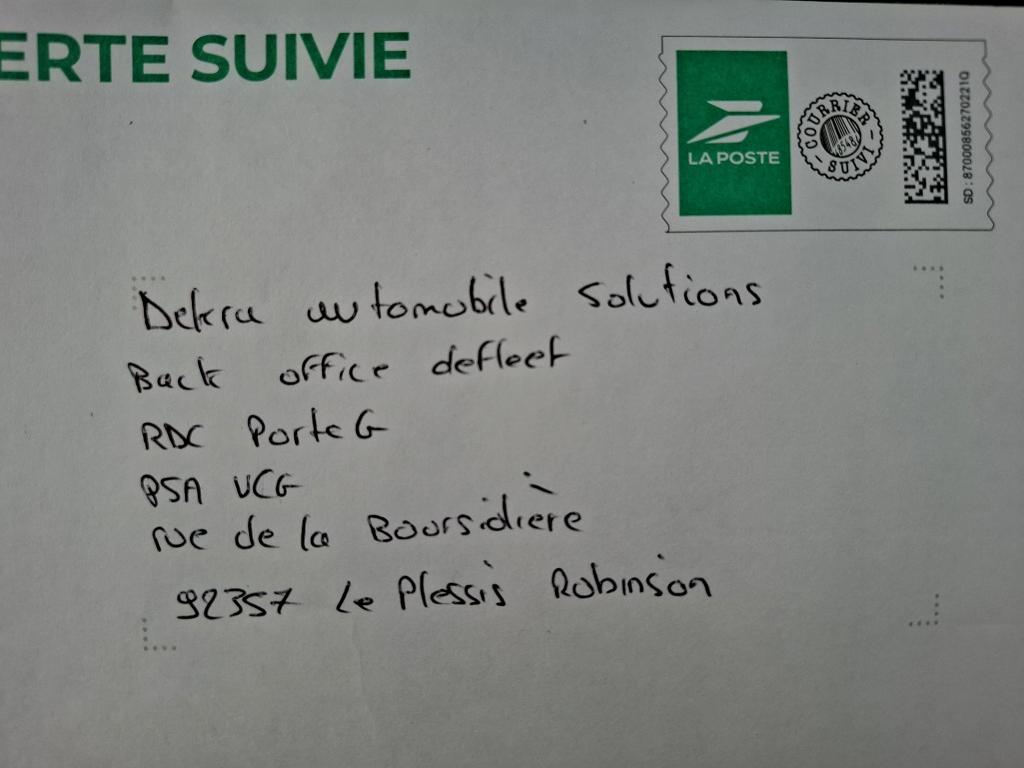 ERTE SUIVIE
LA POSTE
COURRIER
SUIVI
8548
SD : 87000856270221Q
Dekra automobile Solutions
Back office defleet
RDC Porte G
PSA VCG
rue de la Boursidière
92357 Le Plessis Robinson